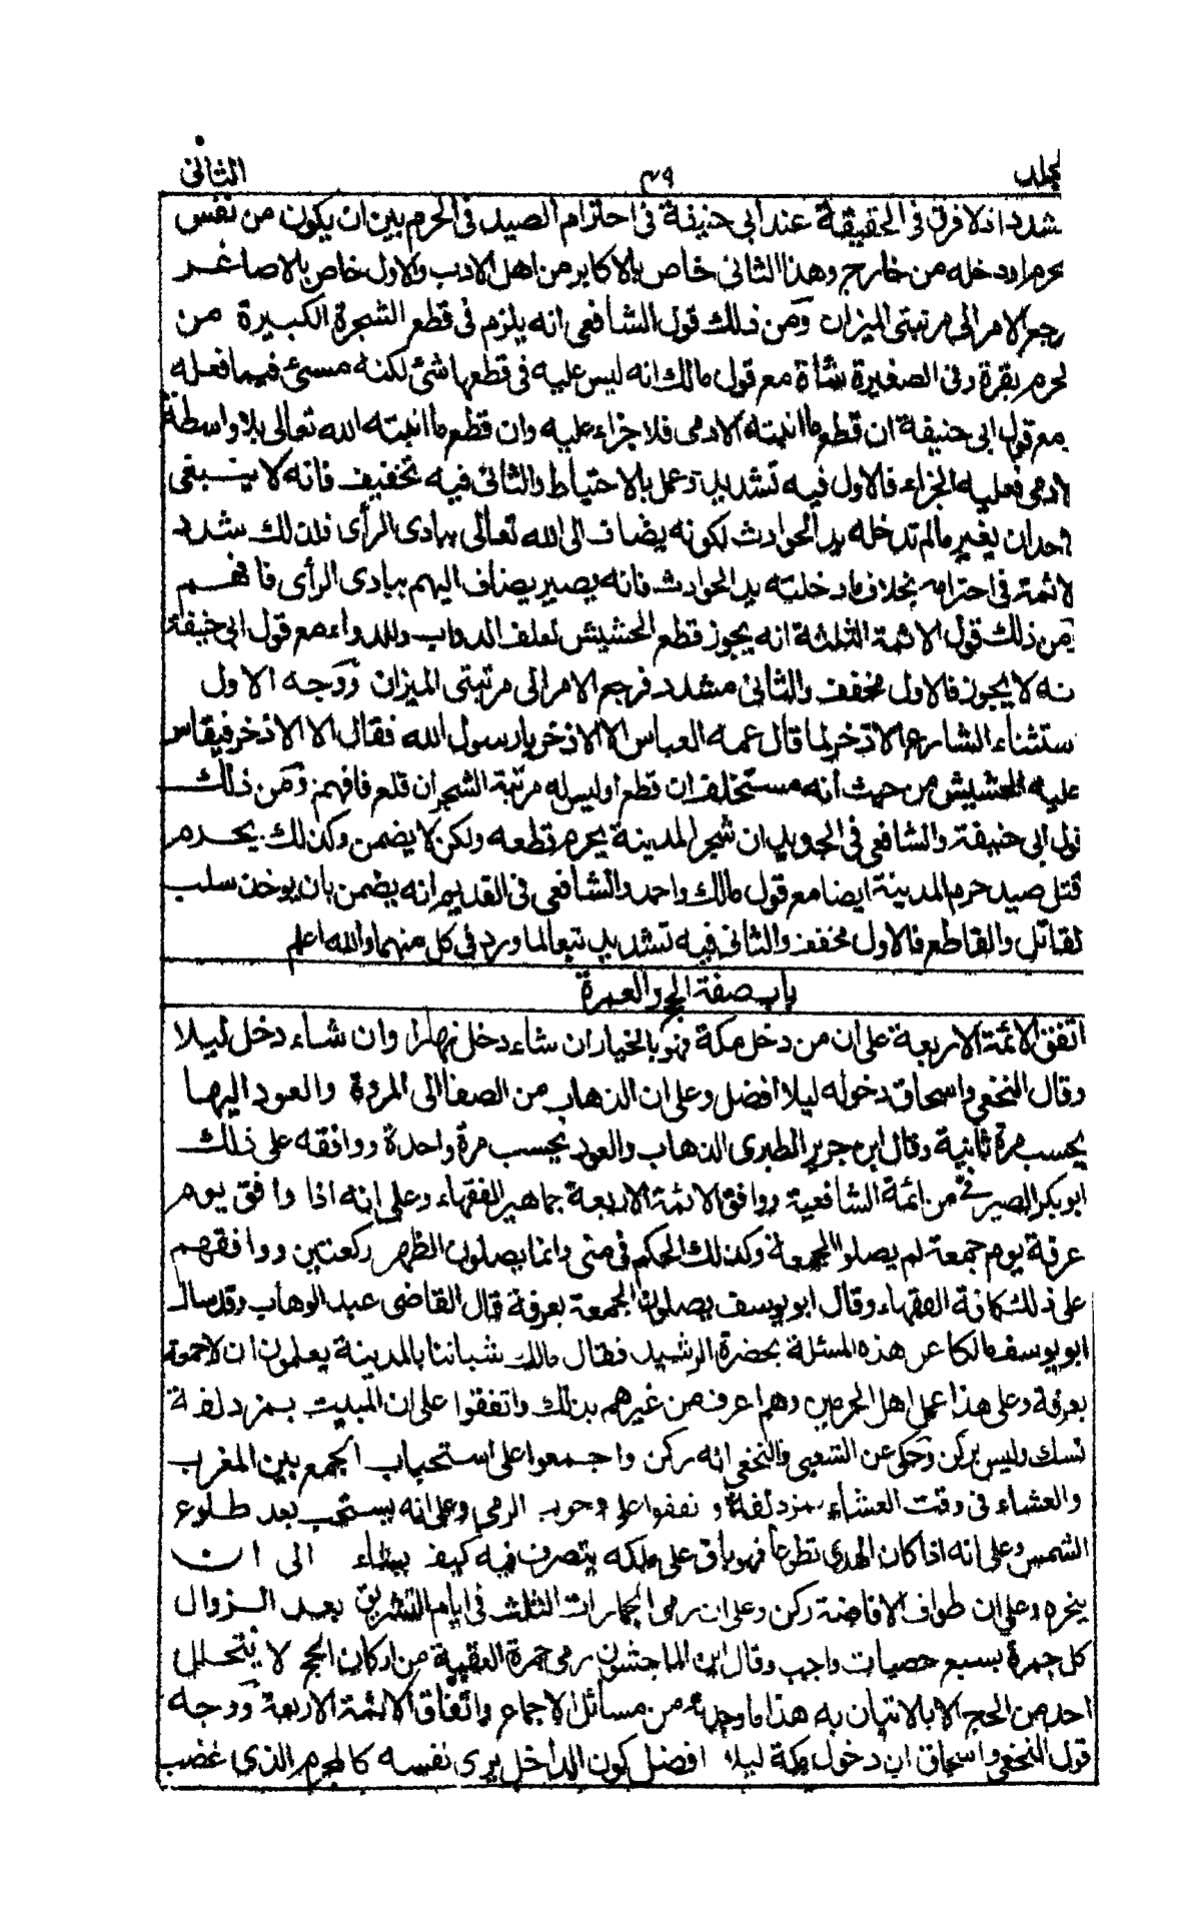 مجلد ٤٩ الثانى
شدد اذ لا فرق فى الحقيقة عند ابى حنيفة فى احترام الصيد فى الحرم بين ان يكون من نفس
حرم او دخله من خارج وهذا الثانى خاص بالاكابر من اهل الادب والاول خاص بالاصاغر
رجع الامر الى مرتبتى الميزان ومن ذلك قول الشافعى انه يلزم فى قطع الشجرة الكبيرة من
لحرم بقرة وفى الصغيرة شاة مع قول مالك انه ليس عليه فى قطعها شئ لكنه مسئ فيما فعله
مع قول ابى حنيفة ان قطع ما انبته الادمى فلا جزاء عليه وان قطع ما انبته الله تعالى بلا واسطة
لادمى فعليه الجزاء فالاول فيه تشديد وعمل بالاحتياط والثانى فيه تخفيف فانه لا ينبغى
لاحدان يغير مالم تدخله يد الحوادث لكونه يضاف الى الله تعالى ببادى الرأى فلذلك شدد
لائمة فى احترامه بخلاف ما دخلته يد الحوادث فانه يصير يضاف اليهم ببادى الرأى فافهم
ومن ذلك قول الائمة الثلثة انه يجوز قطع الحشيش لعلف الدواب وللدواء مع قول ابى حنيفة
نه لا يجوز فالاول مخفف والثانى مشدد فرجع الامر الى مرتبتى الميزان ووجه الاول
ستثناء الشارع الاذخر لما قال عمه العباس الا الاذخر يا رسول الله فقال الا الاذخر فيقاس
عليه الحشيش من حيث أنه مستخلف ان قطع اوليس له مرتبة الشجر ان قلع فافهم ومن ذلك
قول ابى حنيفة والشافعى فى الجديد ان شجر المدينة يحرم قطعه ولكن لا يضمن وكذلك يحرم
قتل صيد حرم المدينة ايضا مع قول مالك واحمد والشافعى فى القديم انه يضمن بان يوخذ سلب
لقاتل والقاطع فالاول مخفف والثانى فيه تشديد تبعا لما ورد فى كل منهما والله اعلم
باب صفة الحج والعمرة
اتفق الائمة الاربعة على ان من دخل مكة فهو بالخيار ان شاء دخل نهارا وان شاء دخل ليلا
وقال النخعى واسحاق دخوله ليلا افضل وعلى ان الذهاب من الصفا الى المروة والعود اليها
يحسب مرة ثانية وقال ابن جرير الطبرى الذهاب والعود يحسب مرة واحدة ووافقه على ذلك
ابو بكر الصيرفى من ائمة الشافعية ووافق الائمة الاربعة جماهير الفقهاء وعلى انه اذا وافق يوم
عرفة يوم جمعة لم يصلوا الجمعة وكذلك الحكم فى منى وانما يصلون الظهر ركعتين ووافقهم
على ذلك كافة الفقهاء وقال ابو يوسف يصلون الجمعة بعرفة قال القاضى عبد الوهاب وقد سال
ابو يوسف مالكا عن هذه المسئلة بحضرة الرشيد فقال مالك شباننا بالمدينة يعلمون ان لاجمعة
بعرفة وعلى هذا عمل اهل الحرمين وهم اعرف من غيرهم بذلك واتفقوا على ان المبيت بمزدلفة
نسك وليس بركن وحكى عن الشعبى والنخعى انه ركن واجمعوا على استحباب الجمع بين المغرب
والعشاء فى وقت العشاء بمزدلفة و نفقوا على وجوب الرمى وعلى انه يستحب بعد طلوع
الشمس وعلى انه اذا كان الهدى تطوعا فهو باق على ملكه يتصرف فيه كيف يشاء الى ان
ينحره وعلى ان طواف الافاضة ركن وعلى ان رمى الجمارات الثلث فى ايام التشريق بعد الزوال
كل جمرة بسبع حصيات واجب وقال ابن الماجشون رمى جمرة العقبة من اركان الحج لا يتحلل
احد من الحج الا بالاتيان به هذا ما وجدته من مسائل الاجماع واتفاق الائمة الاربعة ووجه
قول النخعى واسحاق ان دخول مكة ليلا افضل كون الداخل يرى نفسه كالمجرم الذى غضب